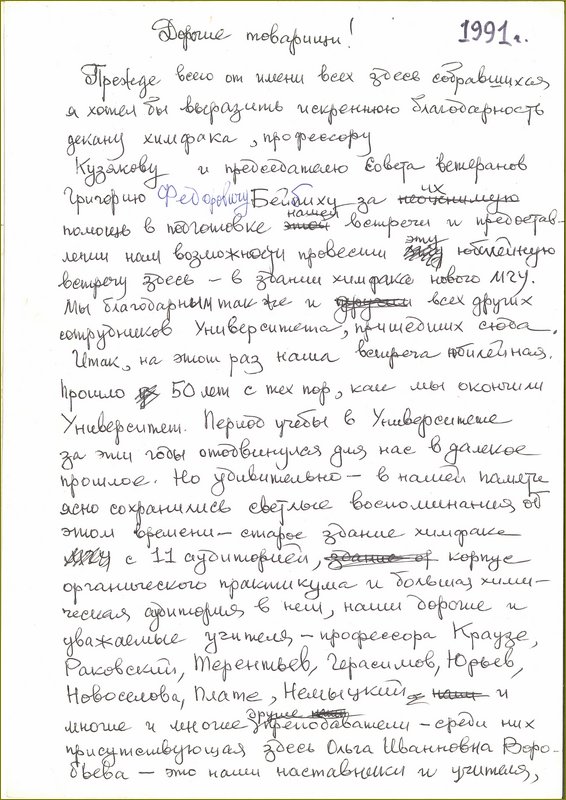 Дорогие товарищи!
1991г.
Прежде всего от имени всех здесь собравшихся
я хотел бы выразить искреннюю благодарность
декану химфака, профессору
Кузякову и председателю совета ветеранов
Григорию Федоровичу Бейбиху за их неоценимую
помощь в подготовке этой нашей встречи и предостав-
лении нам возможности провести эту юбилейную
встречу здесь – в здании химфака нового МГУ.
Мы благодарным так же и другим всех других
сотрудников Университета, пришедших сюда.
Итак, на этот раз наша встреча юбилейная.
Прошло 50 лет с тех пор, как мы окончили
Университет. Период учебы в Университете
за эти годы отодвинулся для нас в далекое
прошлое. Но удивительно – в нашей памяти
ясно сохранились светлые воспоминания об
этом времени – старое здание химфака
МГУ с 11 аудиторией, здание ор корпус
органического практикума и большая хими-
ческая аудитория в нем, наши дорогие и
уважаемые учителя – профессора Краузе,
Раковский, Терентьев, Герасимов, Юрьев,
Новоселова, Плате, Немыцкий, наши и
многие и многие другие преподаватели – среди них
присутствующая здесь Ольга Ивановна Воро-
бьева – это наши наставники и учителя,